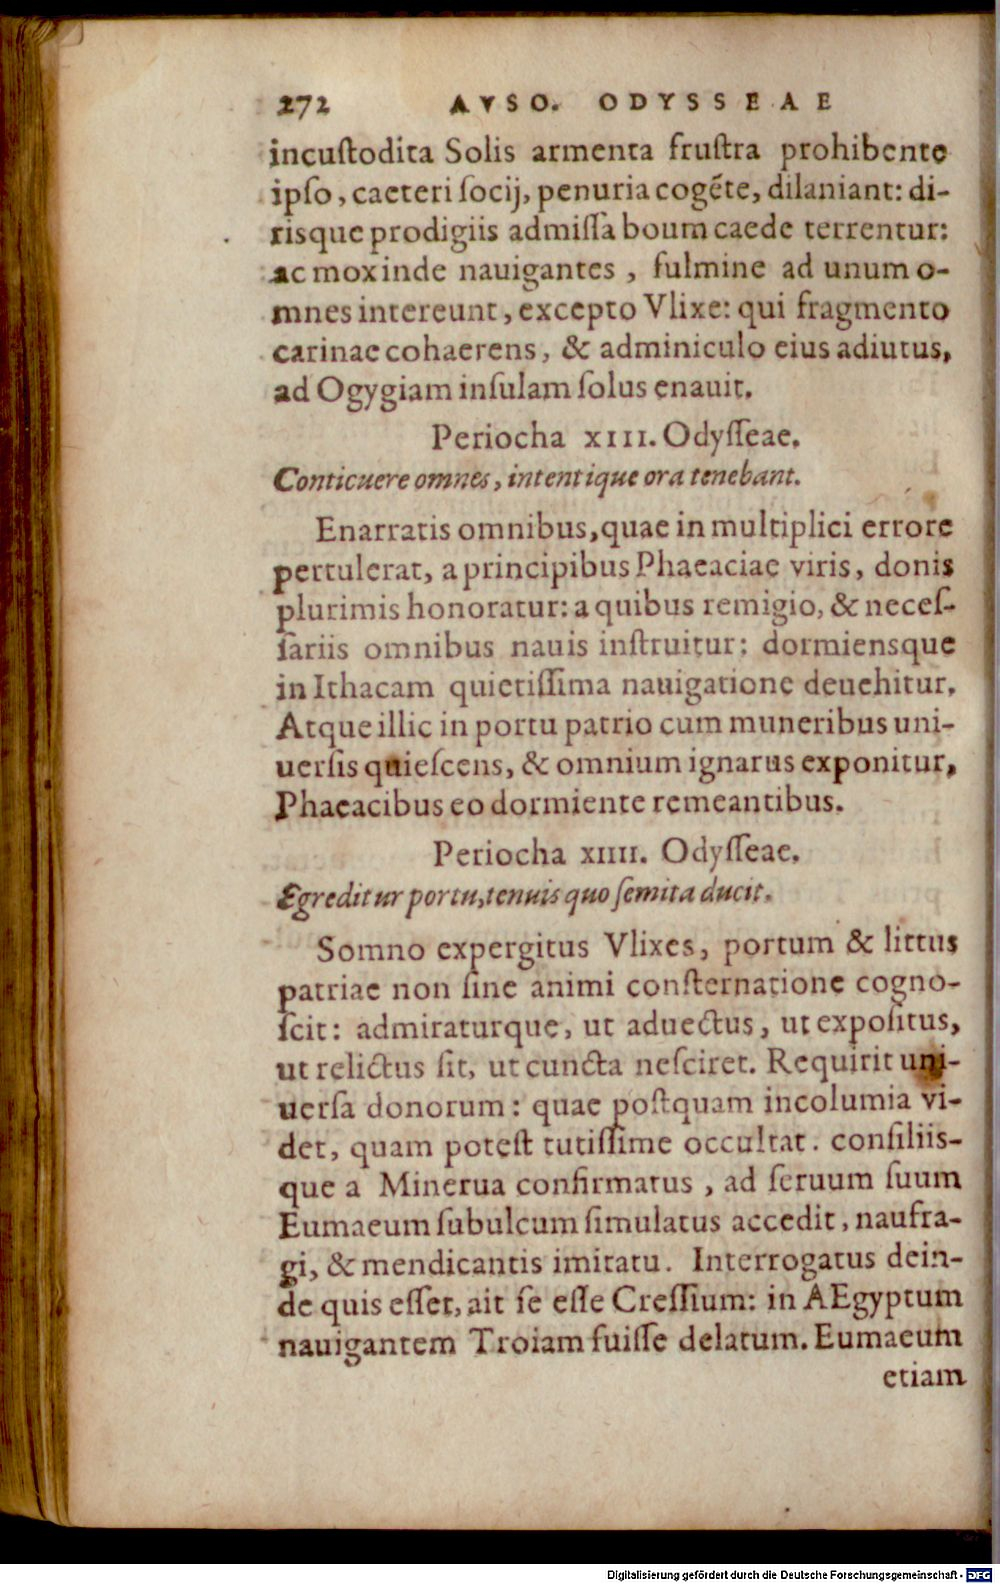 272 AVSO. ODYSSEAE
incustodita Solis armenta frustra prohibente
ipso, caeteri socij, penuria cogẽte, dilaniant: di-
risque prodigiis admissa boum caede terrentur:
ac mox inde nauigantes, fulmine ad unum o-
mnes intereunt, excepto Vlixe: qui fragmento
carinae cohaerens, & adminiculo eius adiutus,
ad Ogygiam insulam solus enauit.
Periocha XIII. Odysseae.
Conticuere omnes, intentique ora tenebant.
Enarratis omnibus, quae in multiplici errore
pertulerat, a principibus Phaeaciae viris, donis
plurimis honoratur: a quibus remigio, & neces-
sariis omnibus nauis instruitur: dormiensque
in Ithacam quietissima nauigatione deuehitur.
Atque illic in portu patrio cum muneribus uni-
uersis quiescens, & omnium ignarus exponitur,
Phaeacibus eo dormiente remeantibus.
Periocha XIIII. Odysseae.
Egreditur portu, tenuis quo semita ducit.
Somno expergitus Vlixes, portum & littus
patriae non sine animi consternatione cogno-
scit: admiraturque, ut aduectus, ut expositus,
ut relictus sit, ut cuncta nesciret. Requirit uni-
uersa donorum: quae postquam incolumia vi-
det, quam potest tutissime occultat. consiliis-
que a Minerua confirmatus, ad seruum suum
Eumaeum subulcum simulatus accedit, naufra-
gi, & mendicantis imitatu. Interrogatus dein-
de quis esset, ait se esse Cressium: in AEgyptum
nauigantem Troiam fuisse delatum. Eumaeum
etiam
Digitalisierung gefördert durch die Deutsche Forschungsgemeinschaft - DFG